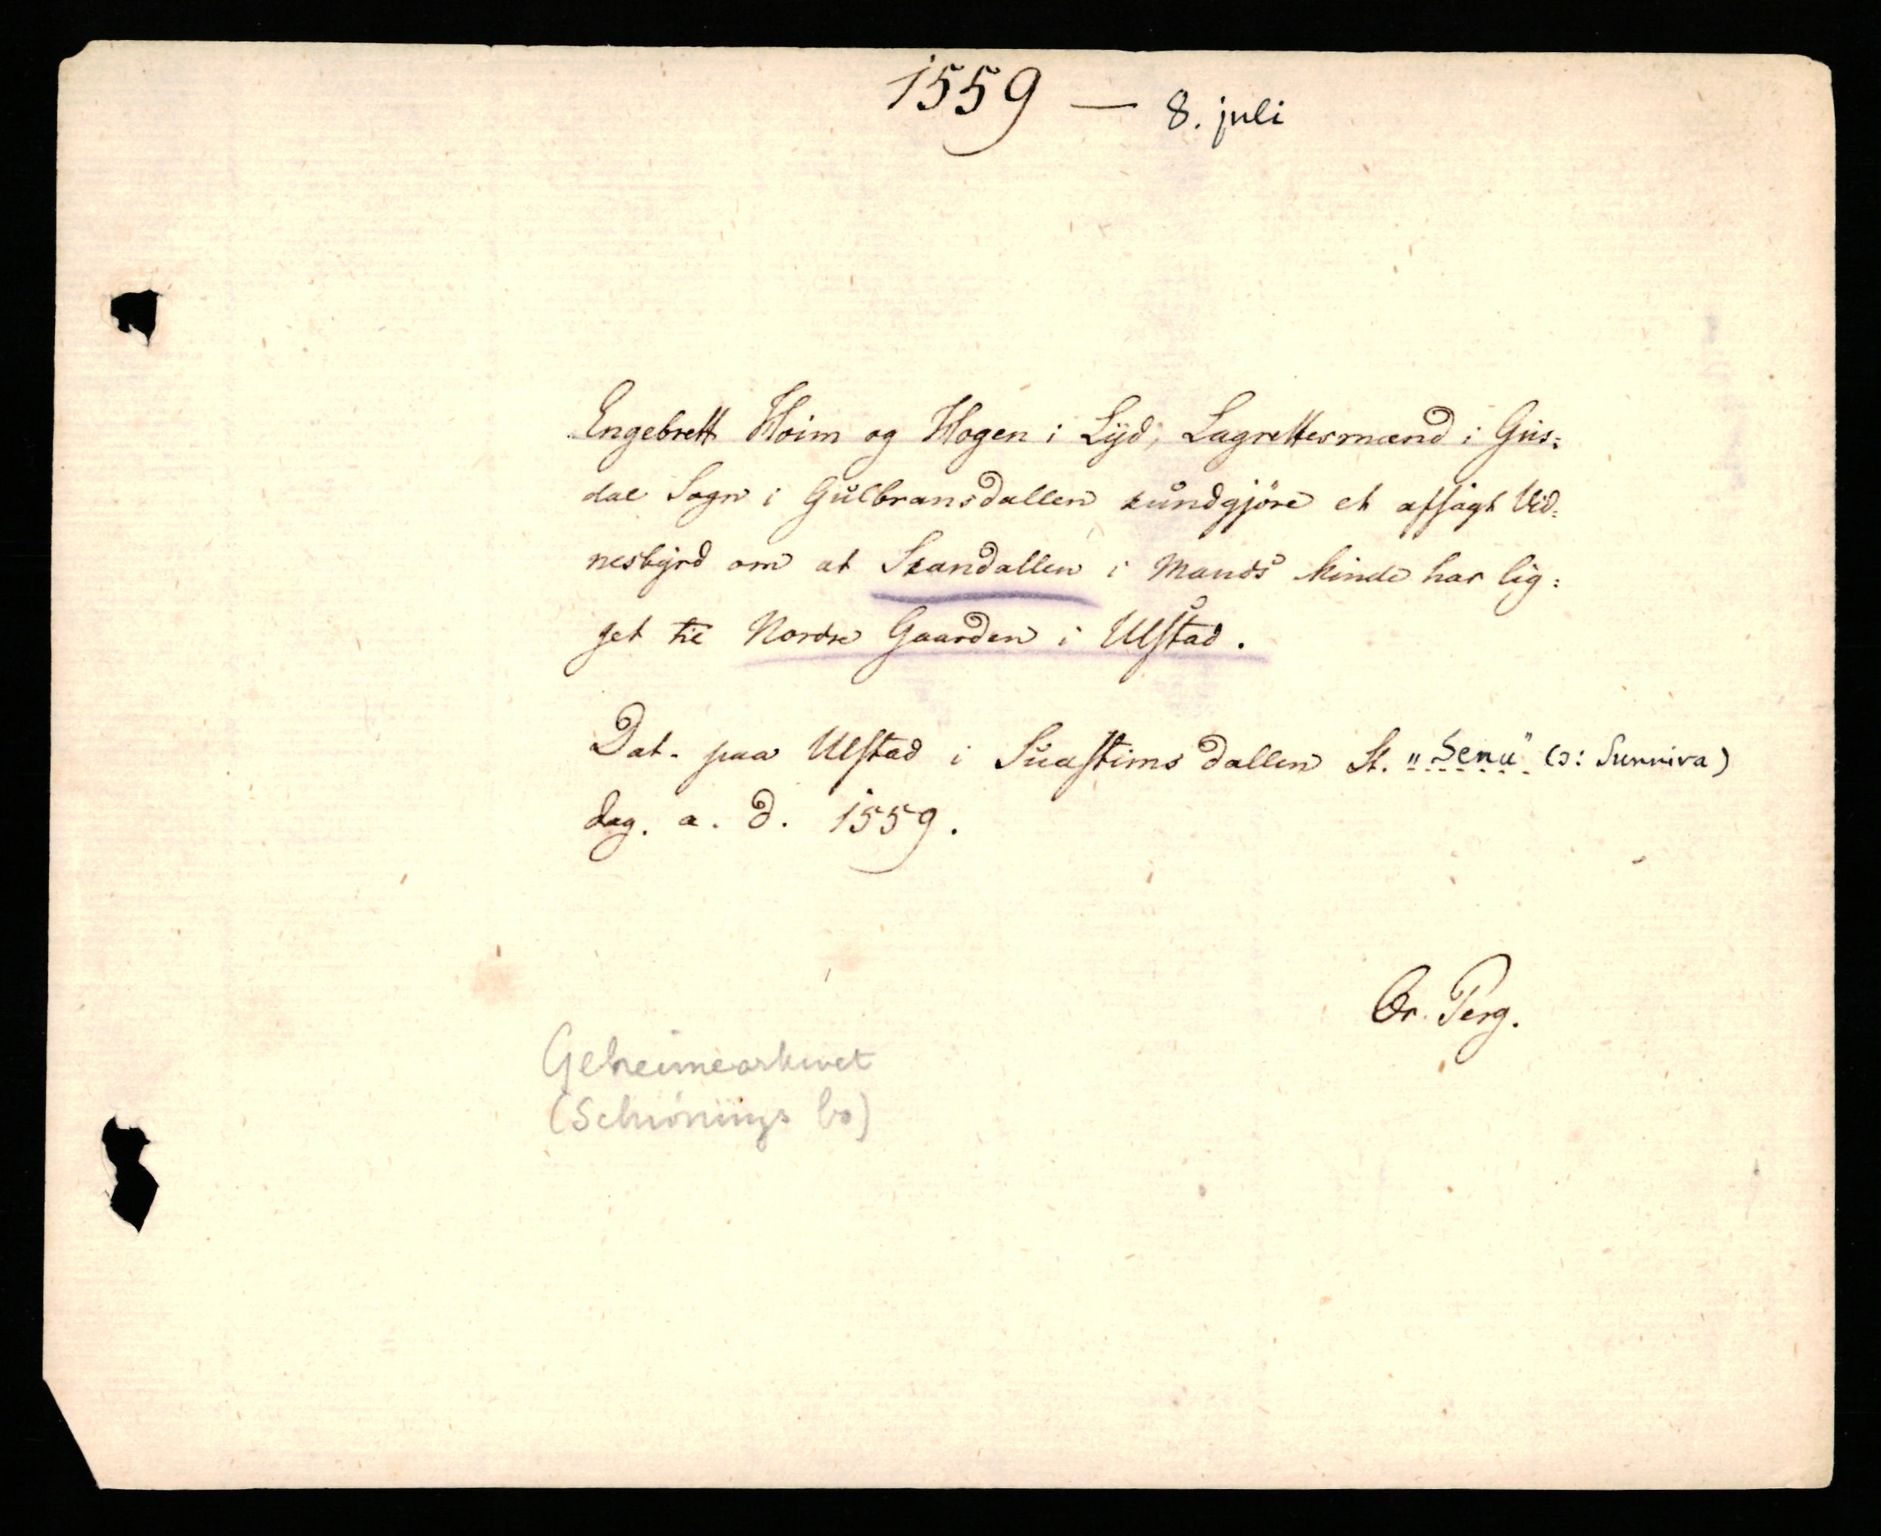 1559 — 8. juli
Engebrett Hoim og Hogen i Lyd, Lagrettesmænd i Gus=
dal Sogn i Gulbransdallen kundgjöre et afsagt Vid=
nesbyrd om at Skandallen i Mands Minde har lig=
get til Nordre Gaarden i Ulstad.
Dat. paa Ulstad i Suastims dallen St. "Senu" (ɔ: Sunniva)
dag. a. d. 1559.
Or. Perg.
Geheimearkivet
(Schiönings bo)